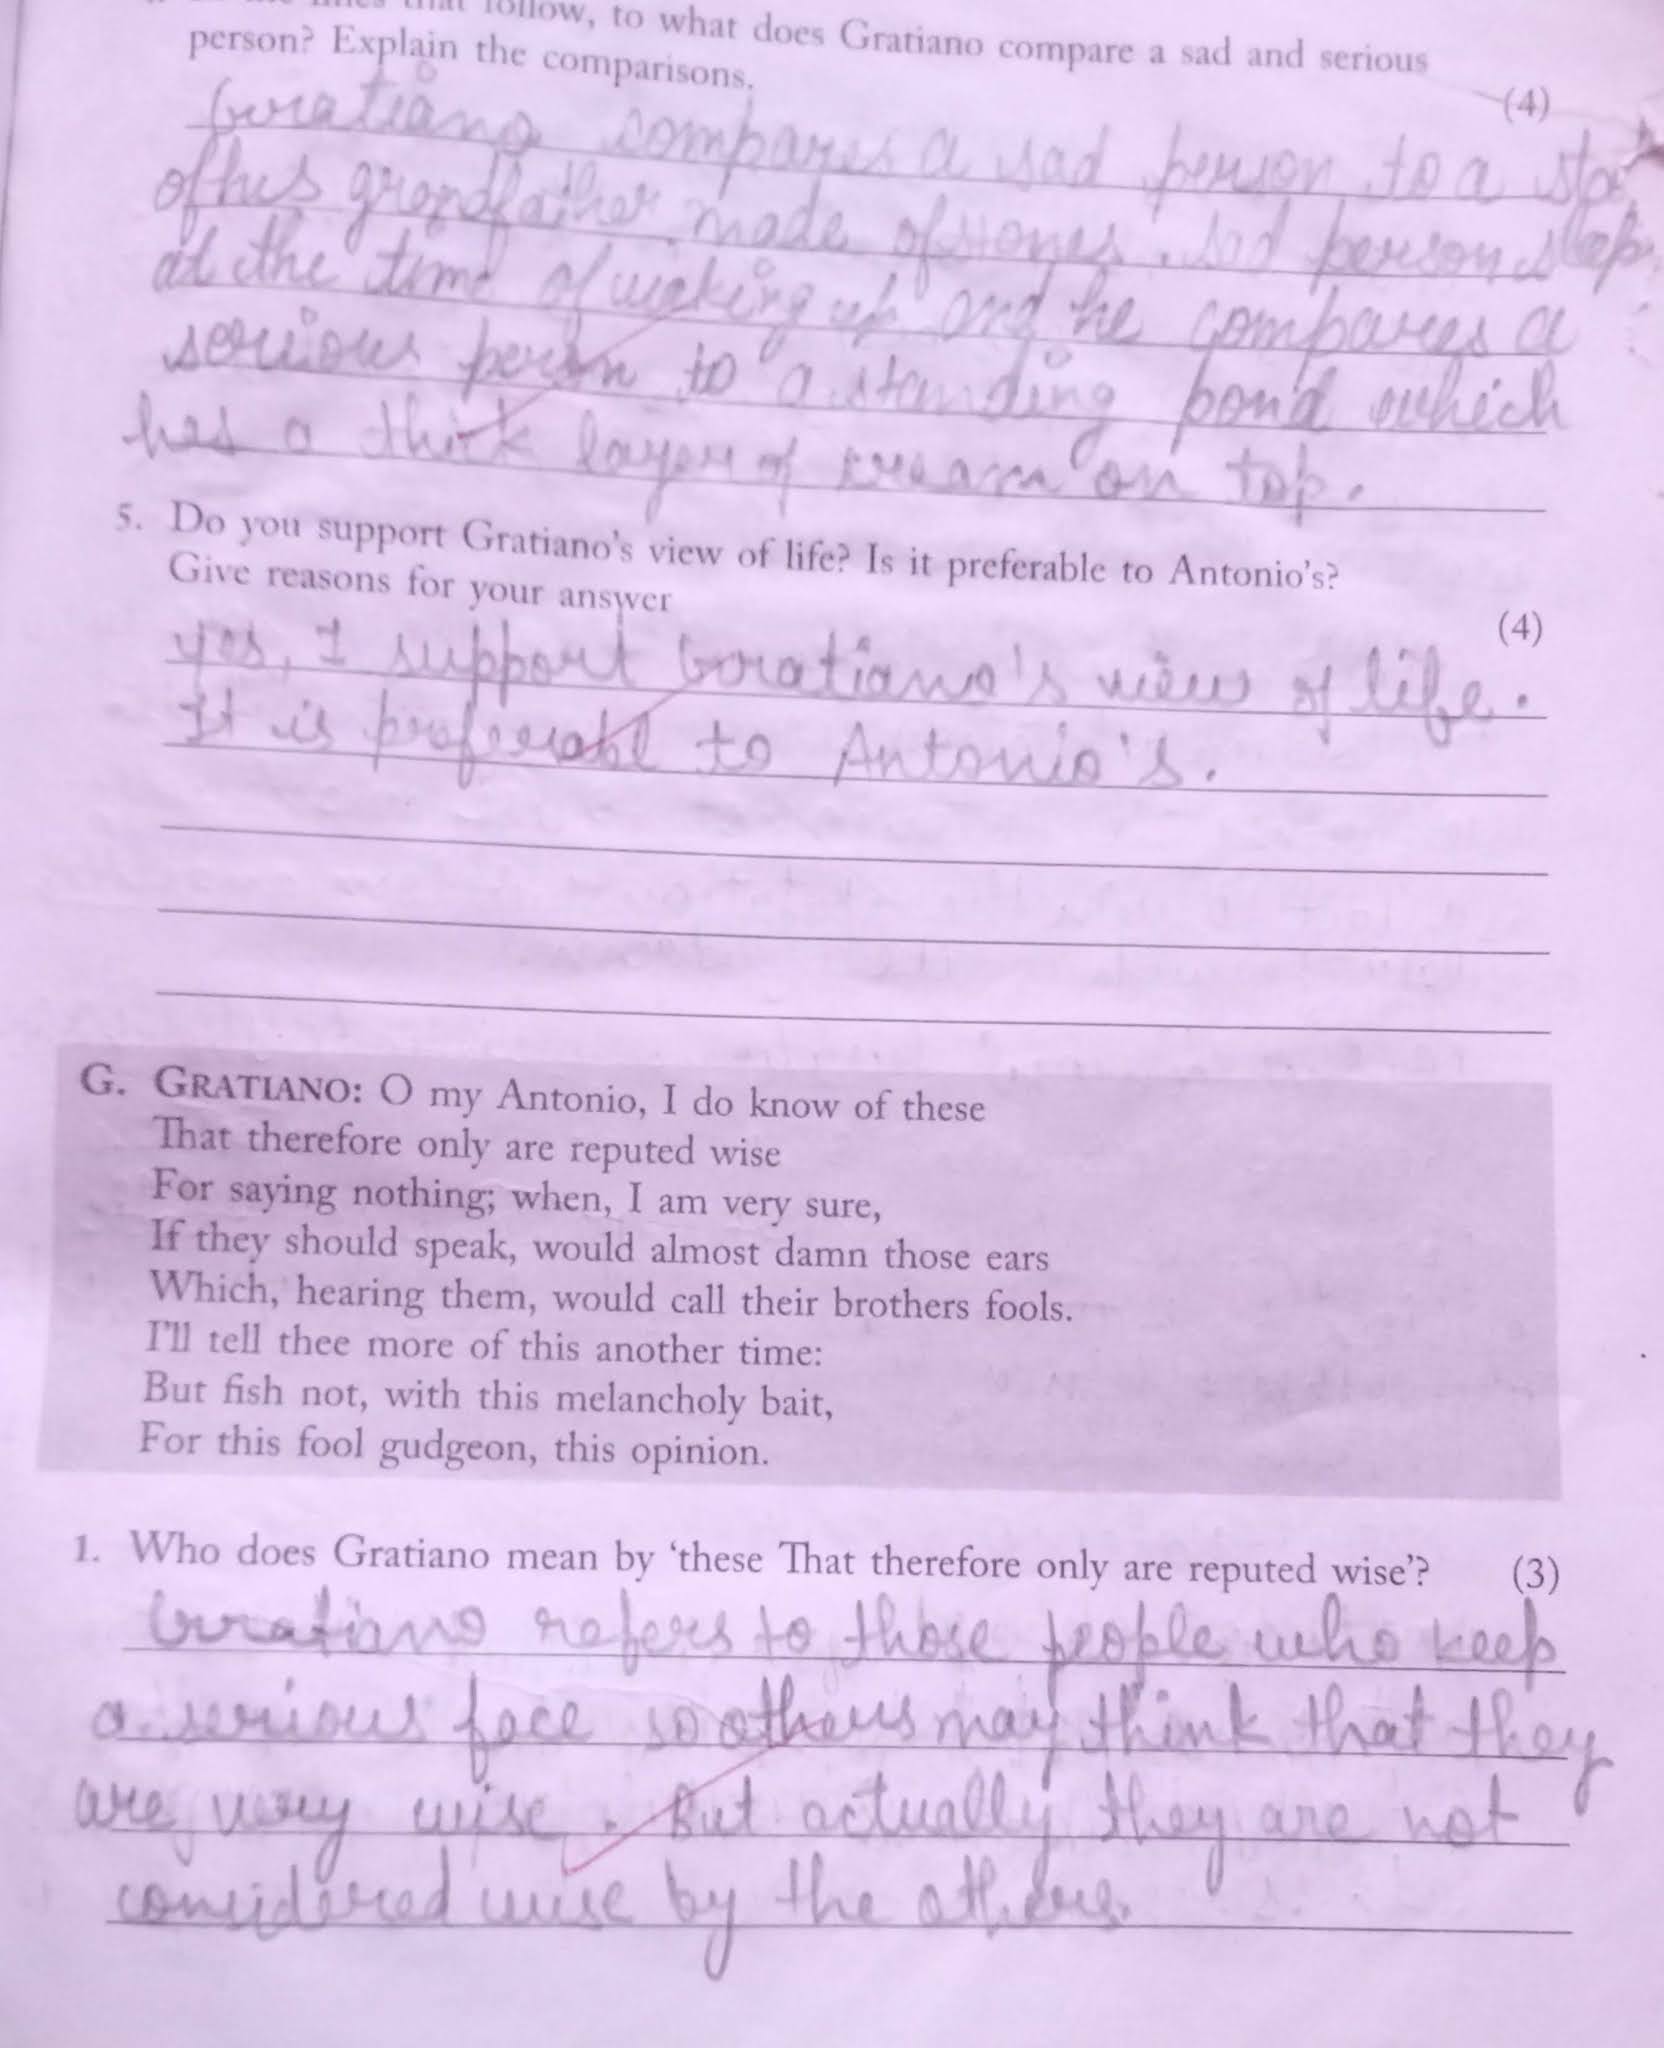 follow, to what does Gratiano compare a sad and serious
person? Explain the comparisons.
(4)
Gratiano compares a sad person to a
of his grandfather made of stones. Sad person sleep
at the time of waking up and he compares a
serious person to a standing pond which
has a thick layer of cream on top.
5. Do you support Gratiano's view of life? Is it preferable to Antonio's?
Give reasons for your answer
(4)
yes, I support Gratiano's view of life.
It is preferabl to Antonio's.
G. GRATIANO: O my Antonio, I do know of these
That therefore only are reputed wise
For saying nothing; when, I am very sure,
If they should speak, would almost damn those ears
Which, hearing them, would call their brothers fools.
I'll tell thee more of this another time:
But fish not, with this melancholy bait,
For this fool gudgeon, this opinion.
1. Who does Gratiano mean by 'these That therefore only are reputed wise'? (3)
Gratiano refers to those people who keep
a serious face so others may think that they
are very wise. But actually they are not
considered wise by the others.